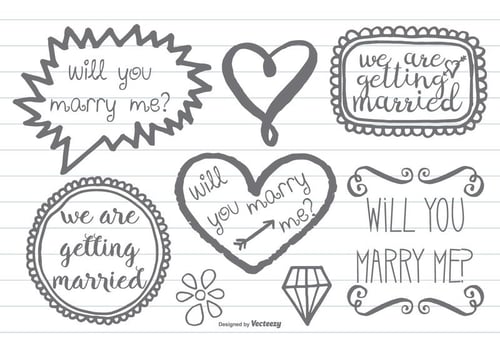 will you
marry me?
we are
getting
married
we are
getting
married
will
you marry
me?
WiLL YOU
MARRY ME?
Designed by Vecteezy